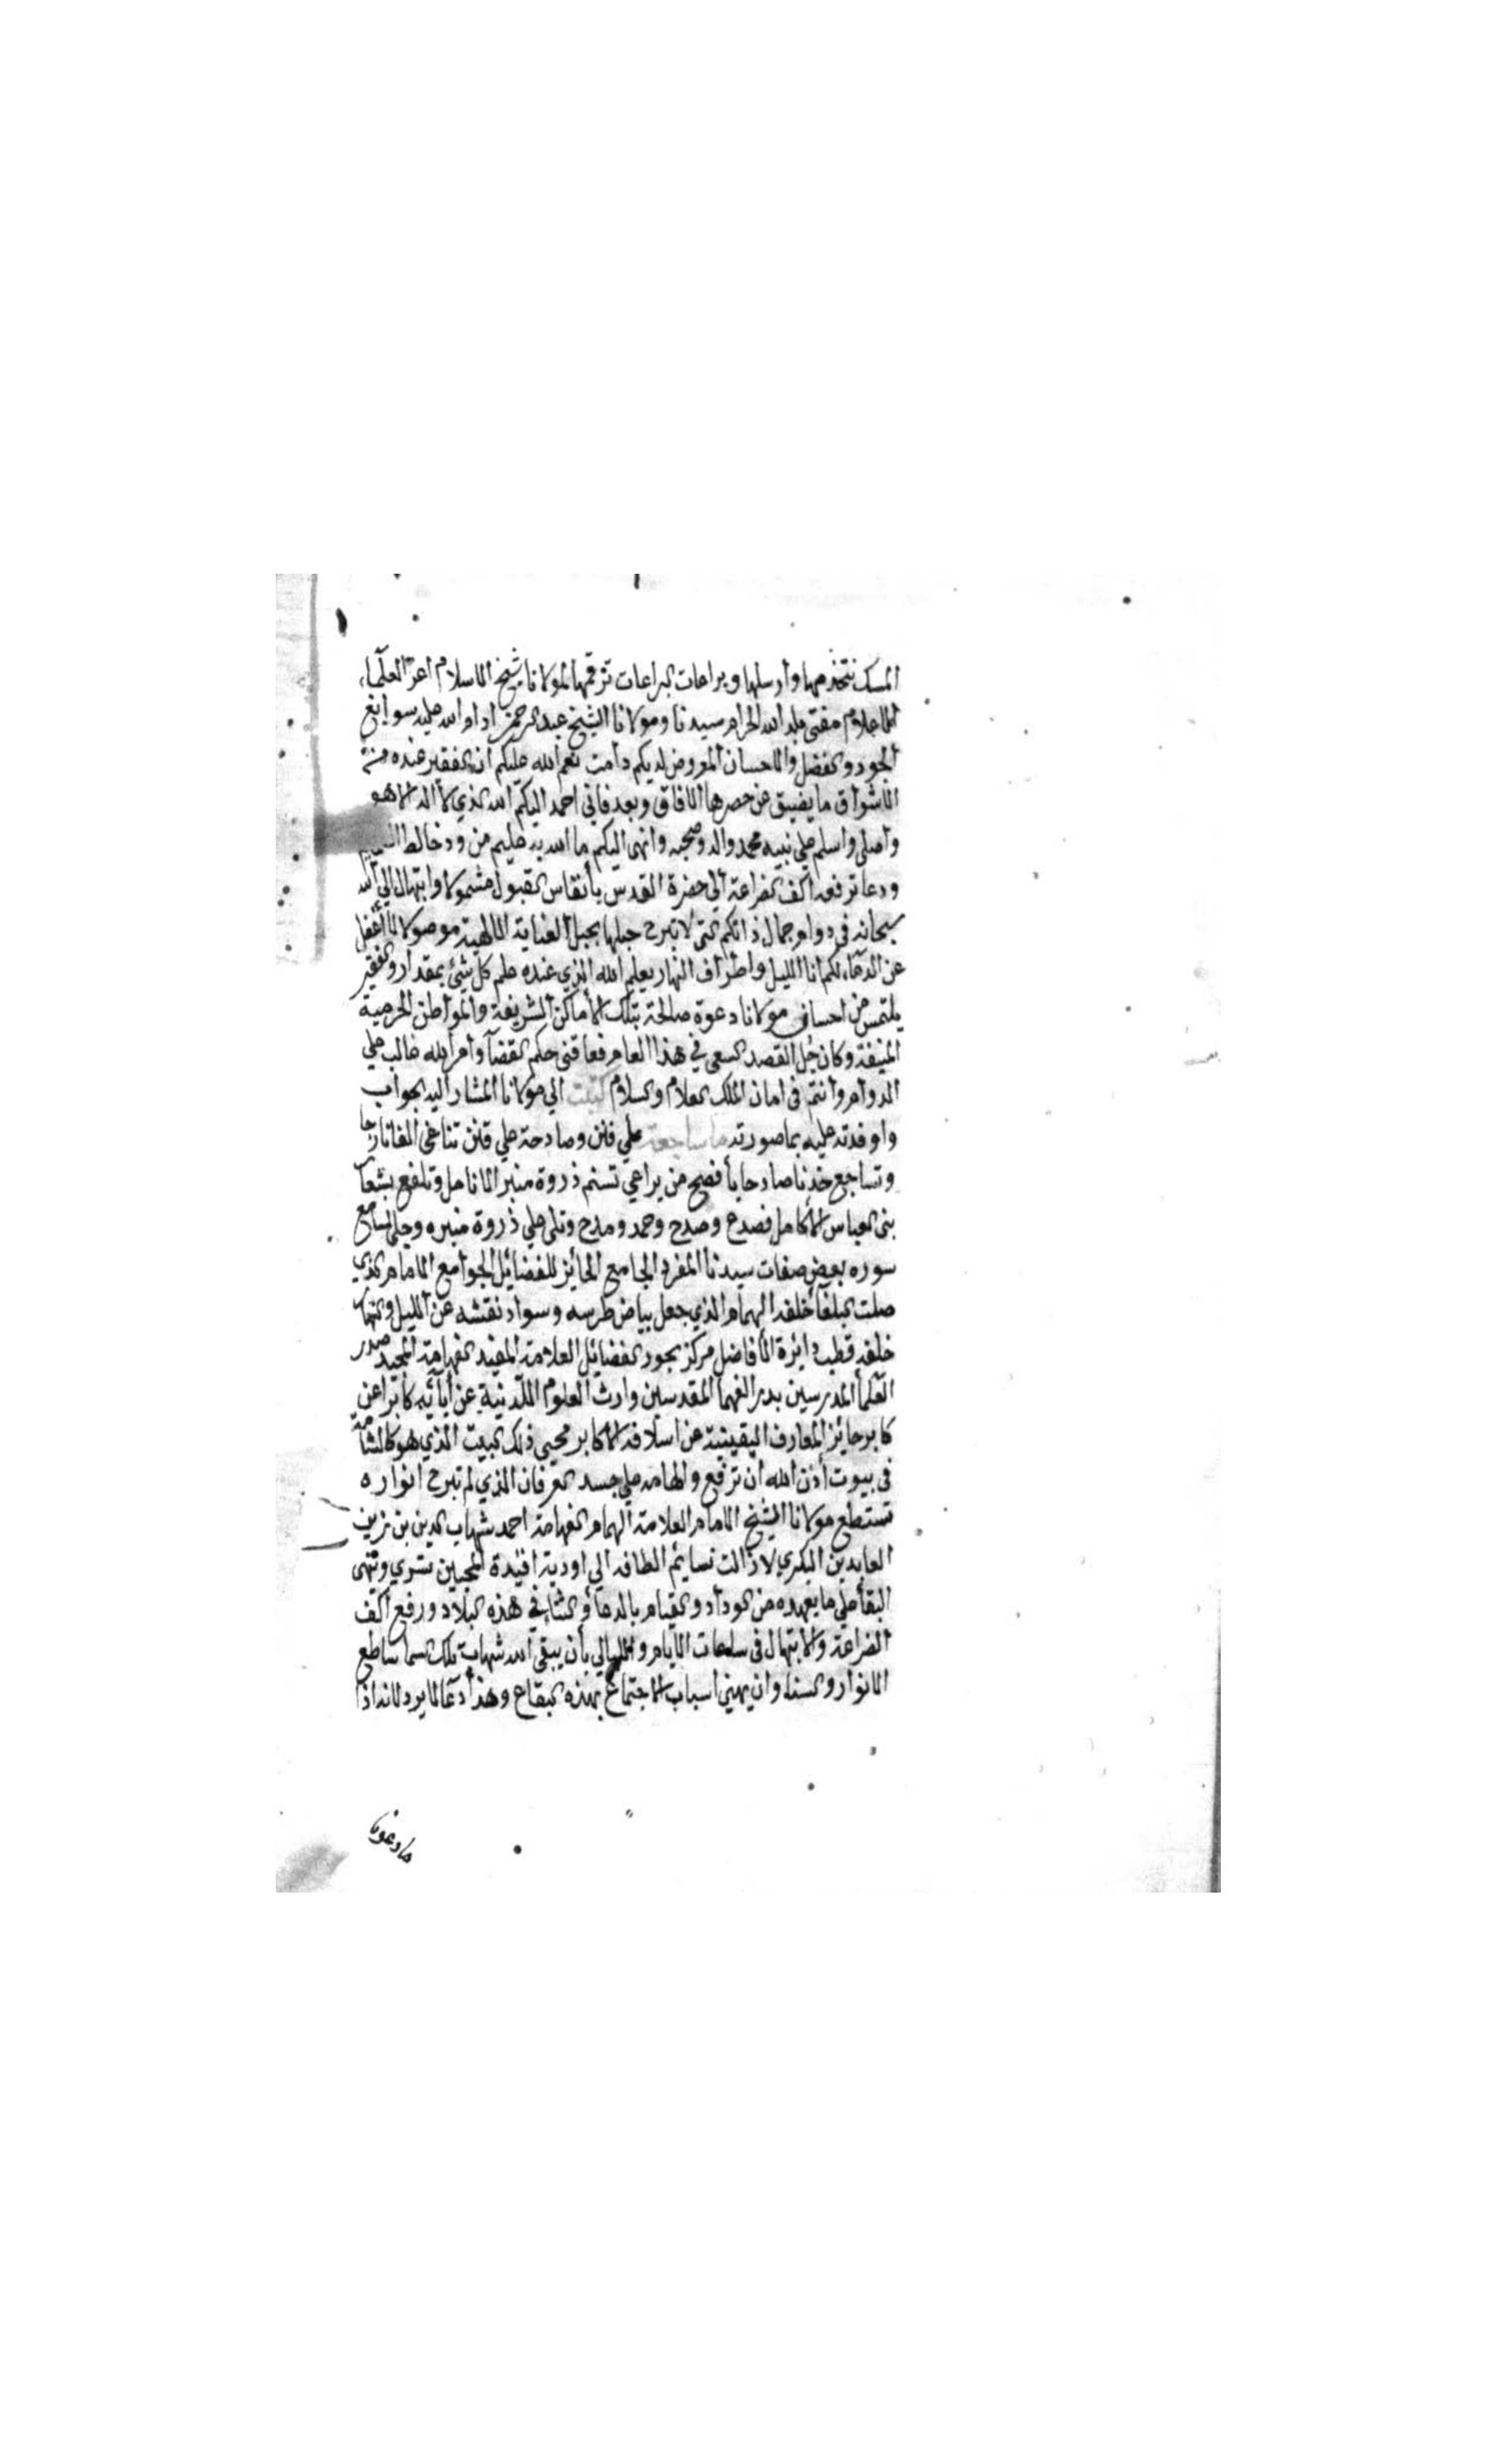 المسك نتخذمها وأرسلها وبراعات البراعات نرقمها لمولانا شيخ الاسلام اعز العلماء
الاعلام مفتي بلد الله الحرام سيدنا ومولانا الشيخ عبد الرحمن ادام الله عليه سوابغ
الجود والفضل والاحسان المعروض لديكم دامت نعم الله عليكم ان الفقير عنده من
الاشواق ما يضيق عن حصرها الافاق وبعد فاني احمد اليكم الله الذي لا اله الا هو
واصلي واسلم علي نبيه محمد واله وصحبه وانهي اليكم ما الله به عليم من ود خالط
ودعا ترفعه اكف الضراعة الي حضرة القدس بأنفاس القبول مشمولا وابتهال الي الله
سبحانه في دوام جمال ذاتكم التي لا تبرح حبلها بحبل العناية الالهية موصولا لا أغفل
عن الدعاء لكم انا الليل واطراف النهار يعلم الله الذي عنده علم كل شيئ بمقدار والفقير
يلتمس من احسان مولانا دعوة صالحة بتلك الأماكن الشريفة والمواطن الحرمية
المنيفة وكان جل القصد السعي في هذا العام فعاقني حكم القضآ وأمر الله غالب علي
الدوام وانتم في امان الملك العلام والسلام كتبت الي مولانا المشار اليه بجواب
واوفدته عليه بما صورته ما ساجعة علي فنن وصادحة علي قنن تناغي
وتساجع خدنا صادحا بأفصح من يراعي تسنم ذروة منبر الانامل وتلفع بشعار
بني العباس الأكامل فصدع وصدح وحمد ومدح وتلي علي ذروة منبره وجلي
سوره بعض صفات سيدنا المفرد الجامع الحائز للفضائل الجوامع الامام الذي
صلت البلغآ خلفه الهمام الذي جعل بياض طرسه وسواد نقشه عن الليل والنهار
خلفه قطب دائرة الأفاضل مركز بحور الفضائل العلامة المفيد الفهامة المجيد صدر
العلمآ المدرسين بدر الفهما المقدسين وارث العلوم اللدنية عن أبآئه كابرا عن
كابر حائز المعارف اليقينية عن اسلافه الأكابر محيي ذلك البيت الذي هو كالشامة
في بيوت أذن الله أن ترفع والهامة علي جسد العرفان الذي لم تبرح انواره
تستطع مولانا الشيخ الامام العلامة الهمام الفهامة احمد شهاب الدين بن زين
العابدين البكري لا زالت نسايم الطافه الي اودية افئدة المحبين تسري وتنهي
البقآ علي ما يعهده من الوداد والقيام بالدعا والثنا في هذه البلاد ورفع أكف
الضراعة والابتهال في ساعات الايام والليالي بأن يبقي الله شهاب تلك السما ساطع
الانوار والسنا وان يهيئ اسباب الاجتماع بهذه البقاع وهذا دعآ لا يرد لانه اذا
ما دعونا